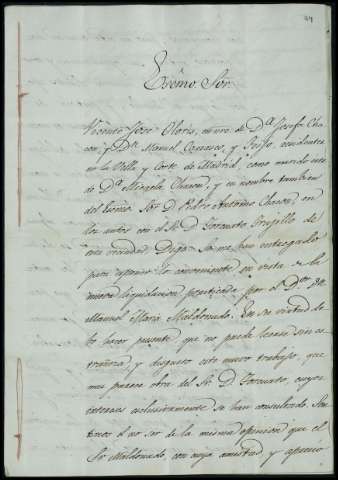 Exêmo. Sôr.
Vicente José Oloris, marido de Dª Josefa Cha
con, y Dn. Manuel Carrasco, y Trejo, residentes
en la Villa y Corte de Madrid, como marido este
de Dª Micaela Chacon, y en nombre tambien
del Exêmo Sôr. D. Pedro Antonio Chacon, en
los autos con el Sr. D. Torcuato Trujillo de
esta vecindad Digo: Se me han entregado
para esponer lo conveniente en vista de la
nueva liquidacion practicada por el Dr. Dn.
Manuel Maria Maldonado. En su virtud de
bo hacer presente que no puede leerse sin es
trañeza, y disgusto este nuevo trabajo, que
mas parece obra del Sr. D. Torcuato, cuyos
intereses esclusivamente se han consultado. Sen
timos el no ser de la misma opinion que el
Sr. Maldonado, con cuya amistad y aprecio